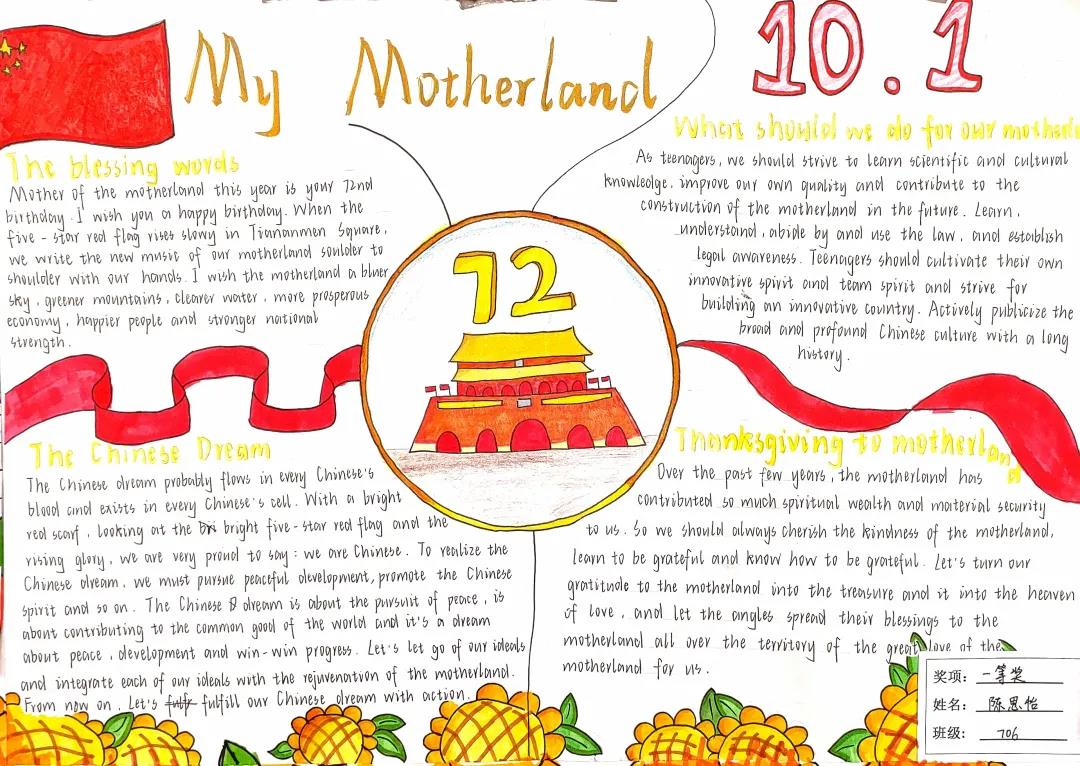 My Motherland
10.1
The blessing words
Mother of the motherland this year is your 72nd
birthday. I wish you a happy birthday. When the
five-star red flag rises slowy in Tiananmen Square,
we write the new music of our motherland soulder to
shoulder with our hands. I wish the motherland a bluer
sky, greener mountains, clearer water, more prosperous
economy, happier people and stronger national
strength.
What should we do for our motherl
As teenagers, we should strive to learn scientific and cultural
knowledge. improve our own quality and contribute to the
construction of the motherland in the future. Learn,
understand, abide by and use the law, and establish
legal awareness. Teenagers should cultivate their own
innovative spirit and team spirit and strive for
building an innovative country. Actively publicize the
broad and profound Chinese culture with a long
history.
72
The Chinese Dream
The Chinese dream probably flows in every Chinese's
blood and exists in every Chinese's cell. With a bright
red scarf, looking at the bright five-star red flag and the
rising glory, we are very proud to say: we are Chinese. To realize the
Chinese dream, we must pursue peaceful development, promote the Chinese
spirit and so on. The Chinese dream is about the pursuit of peace, is
about contributing to the common good of the world and it's a dream
about peace, development and win-win progress. Let's let go of our ideals
and integrate each of our ideals with the rejuvenation of the motherland.
From now on, Let's fulfill our Chinese dream with action.
Thanksgiving to motherland
Over the past few years, the motherland has
contributed so much spiritual wealth and material security
to us. So we should always cherish the kindness of the motherland,
learn to be grateful and know how to be grateful. Let's turn our
gratitude to the motherland into the treasure and it into the heaven
of love, and let the angles spread their blessings to the
motherland all over the territory of the great love of the
motherland for us.
奖项: 一等奖
姓名: 陈思怡
班级: 706